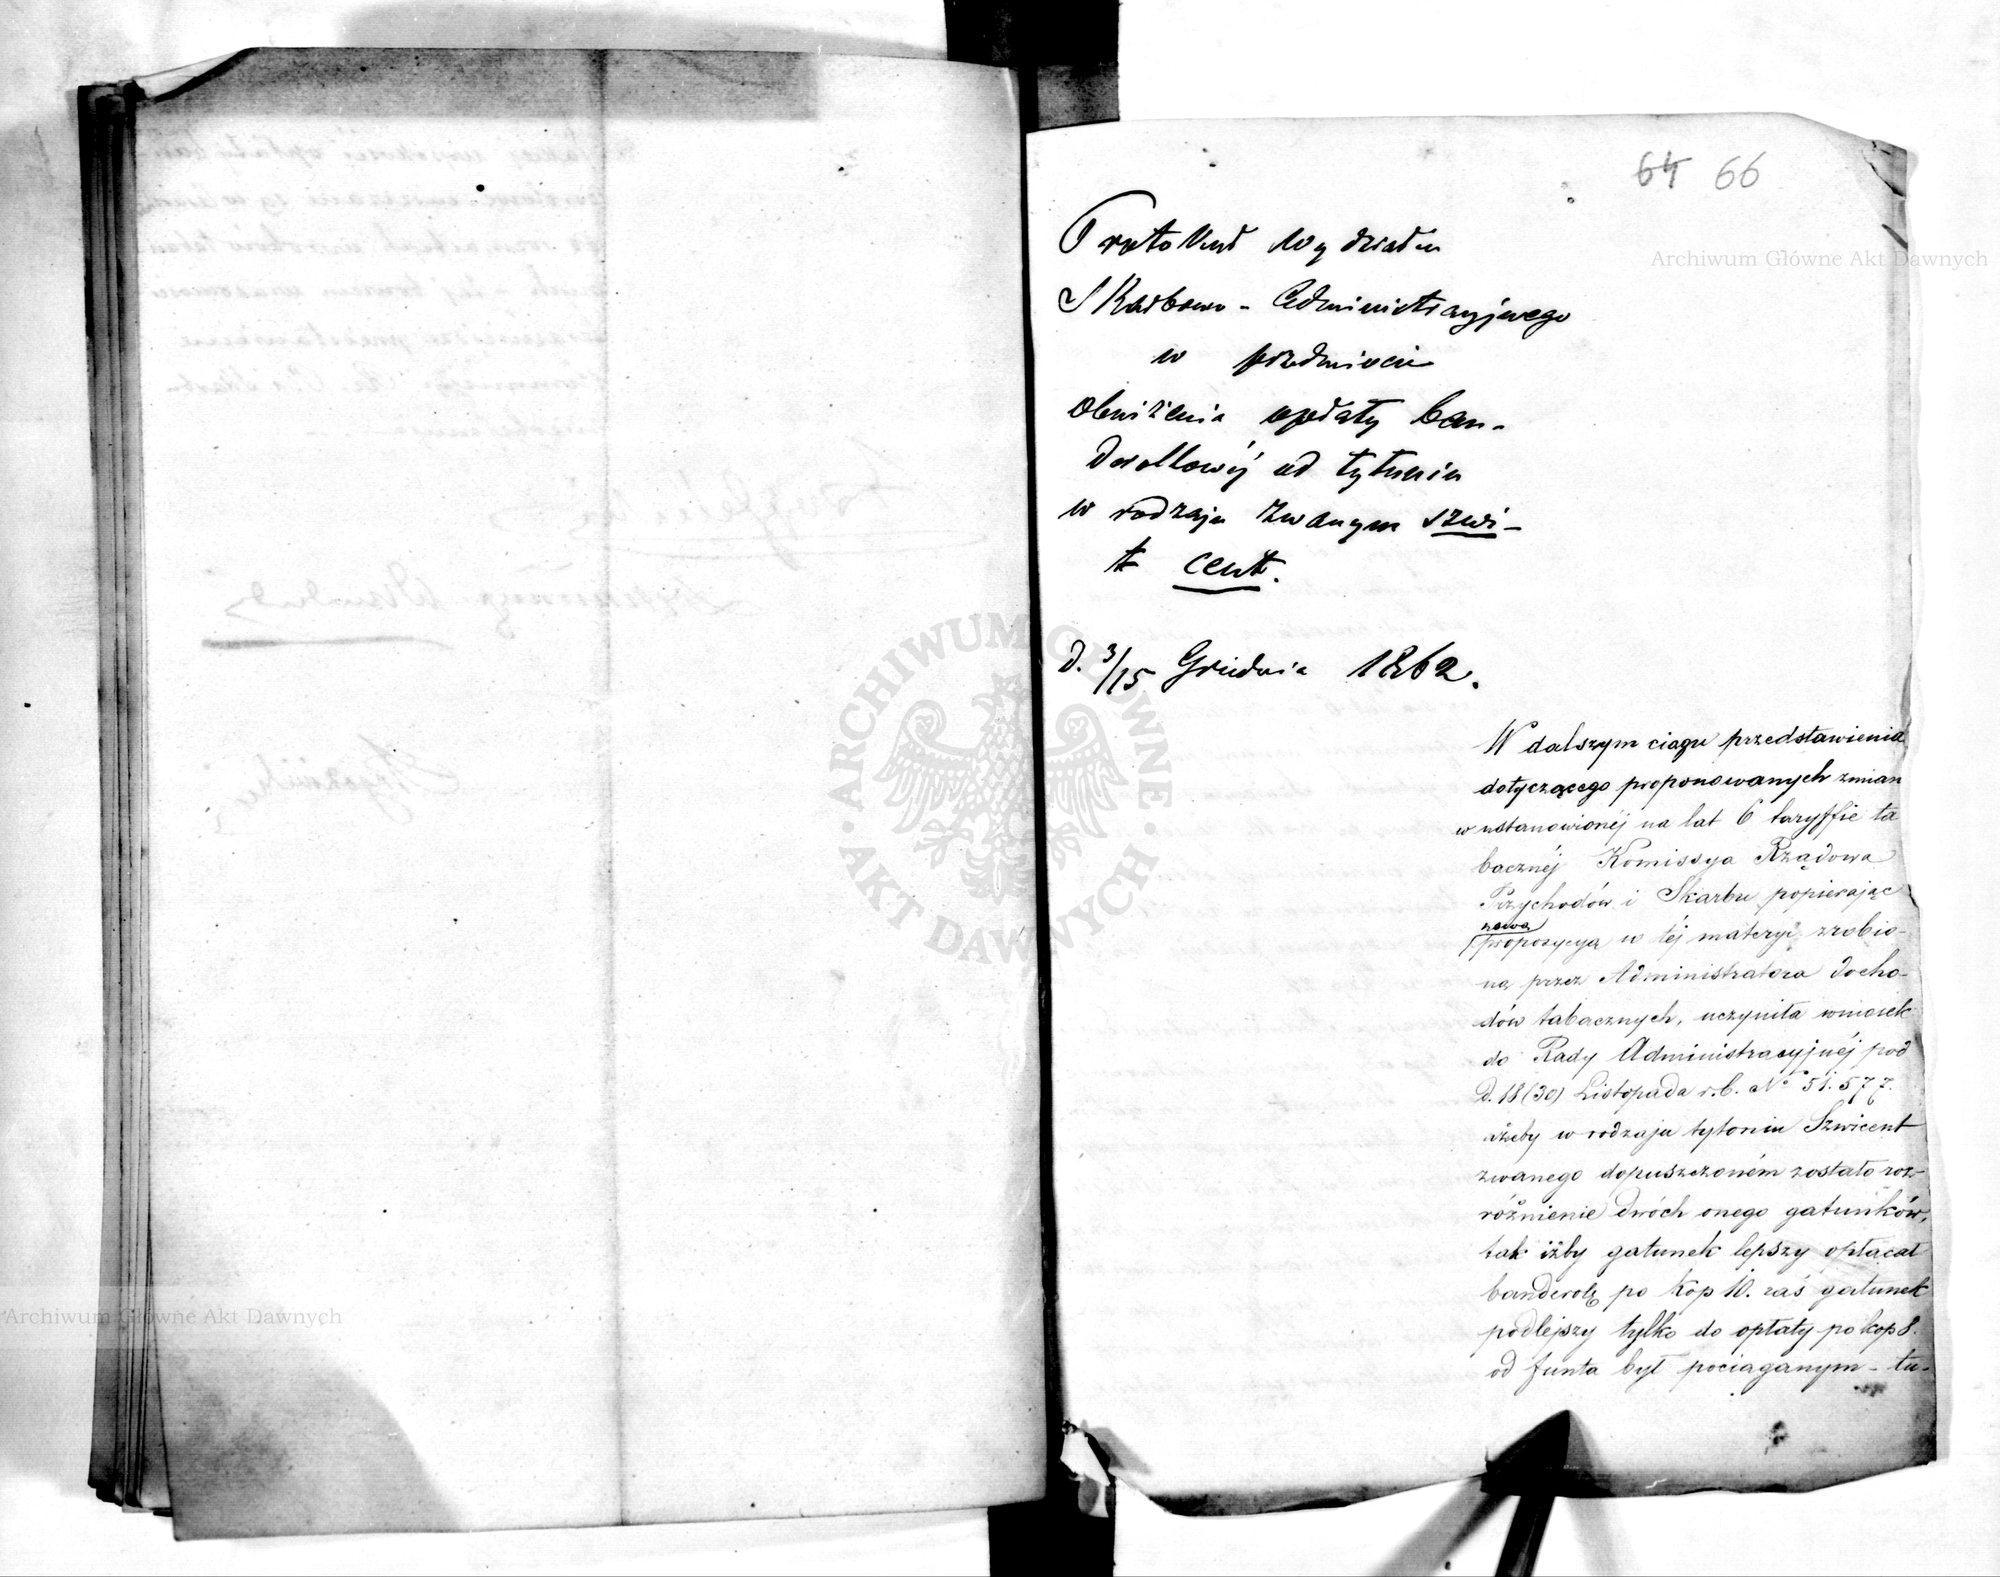 64 66
Protokuł Wydziału
Skarbowo - Administracyjnego
w przedmiocie
obniżenia opłaty ban-
derollowéj od tytuniu
w rodzaju zwanym szwi-
cent.
d. 3/15 Grudnia 1862.
W dalszym ciągu przedstawienia
dotyczącego proponowanych zmian
w ustanowionéj na lat 6 taryffie ta
bacznéj Komissya Rządowa
Przychodów i Skarbu popierając
nową
propozycya w téj materyi zrobio-
ną przez Administratora docho-
dów tabacznych, uczyniła wniosek
do Rady Administracyjnéj pod
d. 18 (30) Listopada r.b. No 51.577.
ażeby w rodzaju tytoniu Szwicent
zwanego dopuszczoném zostało roz-
różnienie dwóch onego gatunków,
tak iżby gatunek lepszy opłacał
banderolę po kop 10. zaś gatunek
podlejszy tylko do opłaty po kop 8.
od funta był pociąganym - tu-
Archiwum Główne Akt Dawnych
Archiwum Główne Akt Dawnych
ARCHIWUM GŁÓWNE · AKT DAWNYCH ·